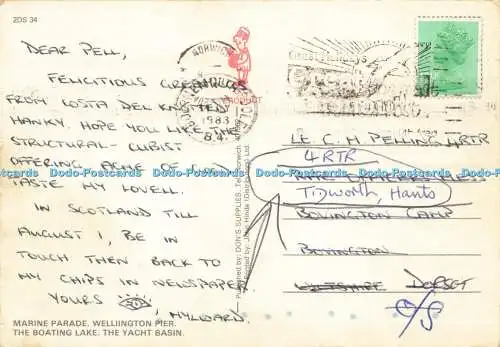 2DS 34
DEAR PELL,
FELICITIOUS GREETINGS
FROM COSTA DEL KNOTTED
HANKY. HOPE YOU LIKE THE
STRUCTURAL - CUBIST
OFFERING ACME OF GOOD
TASTE MY LOVELL.
IN SCOTLAND TILL
AUGUST 1, BE IN
TOUCH THEN BACK TO
MY CHIPS IN NEWSPAPER
YOURS
MYLWARD.
MARINE PARADE. WELLIINGTON PIER.
THE BOATING LAKE. THE YACHT BASIN.
NORWICH
1983
PRODUCT
Published by: DON'S SUPPLIES
Printed by: John Hinde (Distributors) Ltd.
LE C. H PELLING 4RTR
4 RTR
TIDWORTH, Hants
BOVINGTON CAMP
BOVINGTON
DORSET
Dodo-Postcards Dodo-Postcards Dodo-Postcards Dodo-Postcards